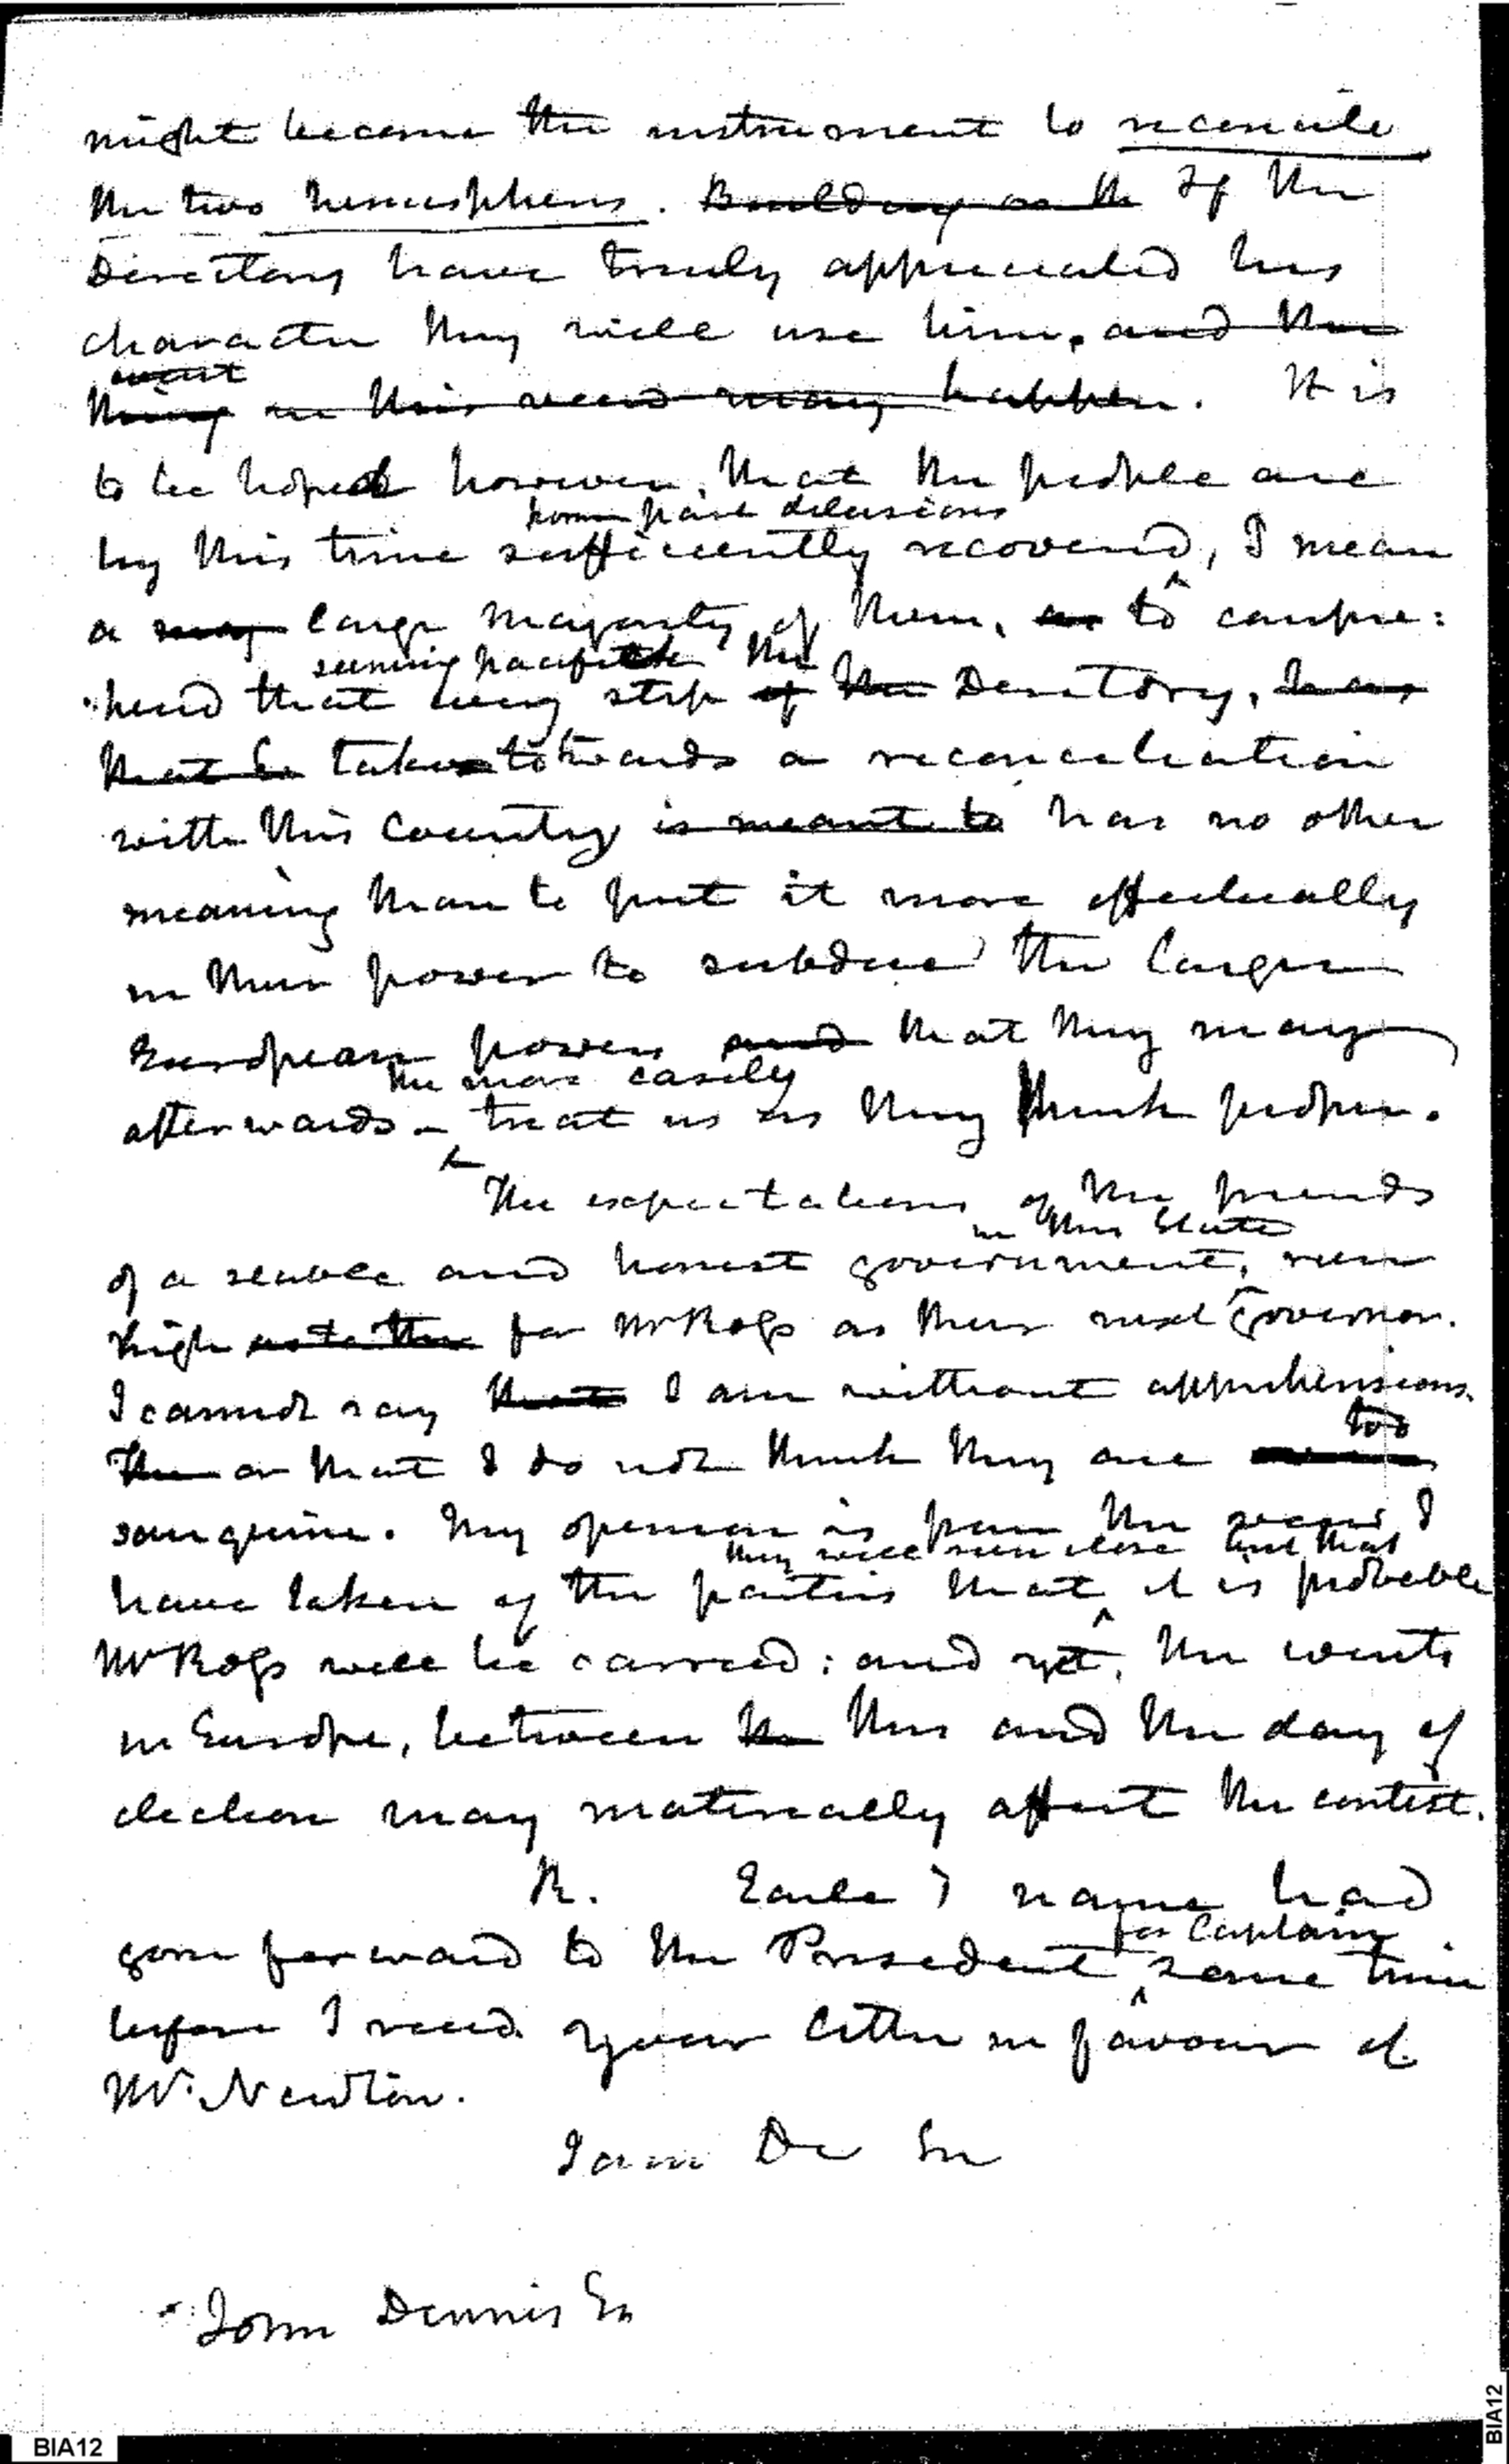 might become the instrument to reconcile
the two hemispheres. Building on the If the
Directory have truly appreciated his
character they will use him, and the
event
thing in this view may happen. It is
to be hoped however, that the people are
from past delusions
by this time sufficiently recovered, I mean
a maj large majority of them, as to compre:
seeming pacifick the
:hend that every step of the Directory, has
that be taken towards a reconciliation
with this Country is meant to has no other
meaning than to put it more effectually
in their power to subdue the larger
European powers and that they may
the more easily
afterwards treat us as they think proper.
The expectations of the friends
in this State
of a stable and honest government, run
high as to the for Mr Ross as their next Governor.
I cannot say that I am without apprehensions.
too
The or that I do not think they are
sanguine. My opinion is from the view I
they will run close but that
have taken of the parties that it is probable
Mr Ross will be carried: and yet, the events
in Europe, between the this and the day of
election may materially affect the contest.
R. Earle's name had
for Captain
gone forward to the President some time
before I recd. your letter in favour of
Mr. Newton.
I am Dr Sir
John Dennis Esq
BIA12
BIA12